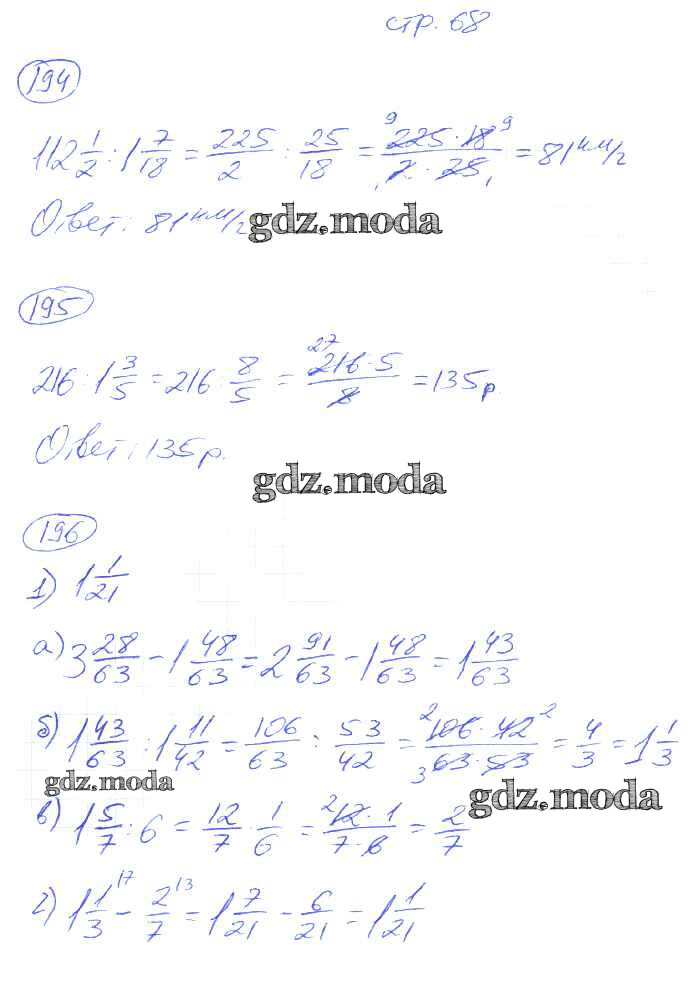 стр. 68
194
112 1/2 : 1 7/18 = 225/2 : 25/18 = 225·18/2·25 = 81 км/г
Ответ: 81 км/г
gdz.moda
195
216 : 1 3/5 = 216 · 8/5 = 216·5/8 = 135 р.
Ответ: 135 р.
gdz.moda
196
1) 1 1/21
а) 3 28/63 - 1 48/63 = 2 91/63 - 1 48/63 = 1 43/63
б) 1 43/63 : 1 11/42 = 106/63 : 53/42 = 106·42/63·53 = 4/3 = 1 1/3
gdz.moda
gdz.moda
в) 1 5/7 : 6 = 12/7 · 1/6 = 12·1/7·6 = 2/7
г) 1 1/3 - 2/7 = 1 7/21 - 6/21 = 1 1/21